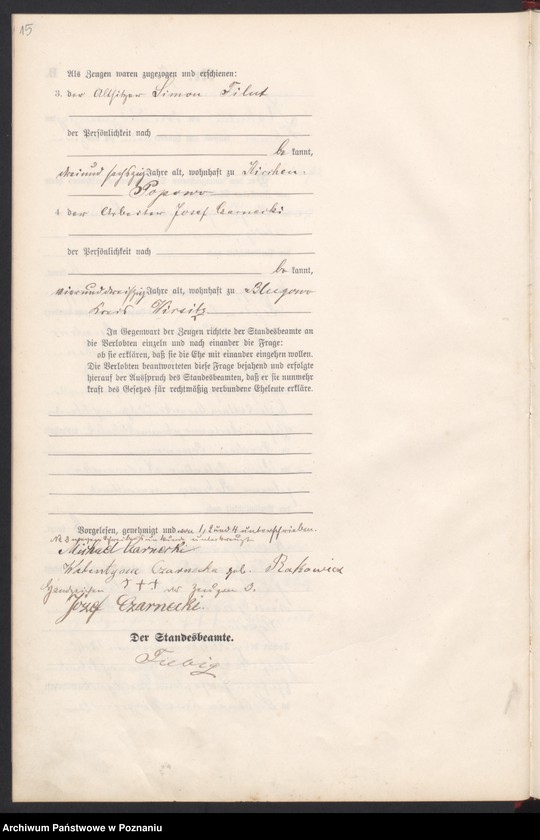 15
Als Zeugen waren zugezogen und erschienen:
3. der Altsitzer Simon Filut
der Persönlichkeit nach
be kannt,
dreiundsechszig Jahre alt, wohnhaft zu Kirchen-
Popowo
4. der Arbeiter Josef Czarnecki
der Persönlichkeit nach
be kannt,
vierunddreißig Jahre alt, wohnhaft zu Blugowo
Kreis Wirsitz
In Gegenwart der Zeugen richtete der Standesbeamte an
die Verlobten einzeln und nach einander die Frage:
ob sie erklären, daß sie die Ehe mit einander eingehen wollen.
Die Verlobten beantworteten diese Frage bejahend und erfolgte
hierauf der Ausspruch des Standesbeamten, daß er sie nunmehr
kraft des Gesetzes für rechtmäßig verbundene Eheleute erkläre.
Vorgelesen, genehmigt und von 1, 2 und 4 unterschrieben.
No 3 wegen unterkreuzt
Michael Czarnecki
Czarnecka geb. Rakowicz
Handzeichen +++ des Zeugen 3.
Józef Czarnecki.
Der Standesbeamte.
Fiebig
Archiwum Państwowe w Poznaniu